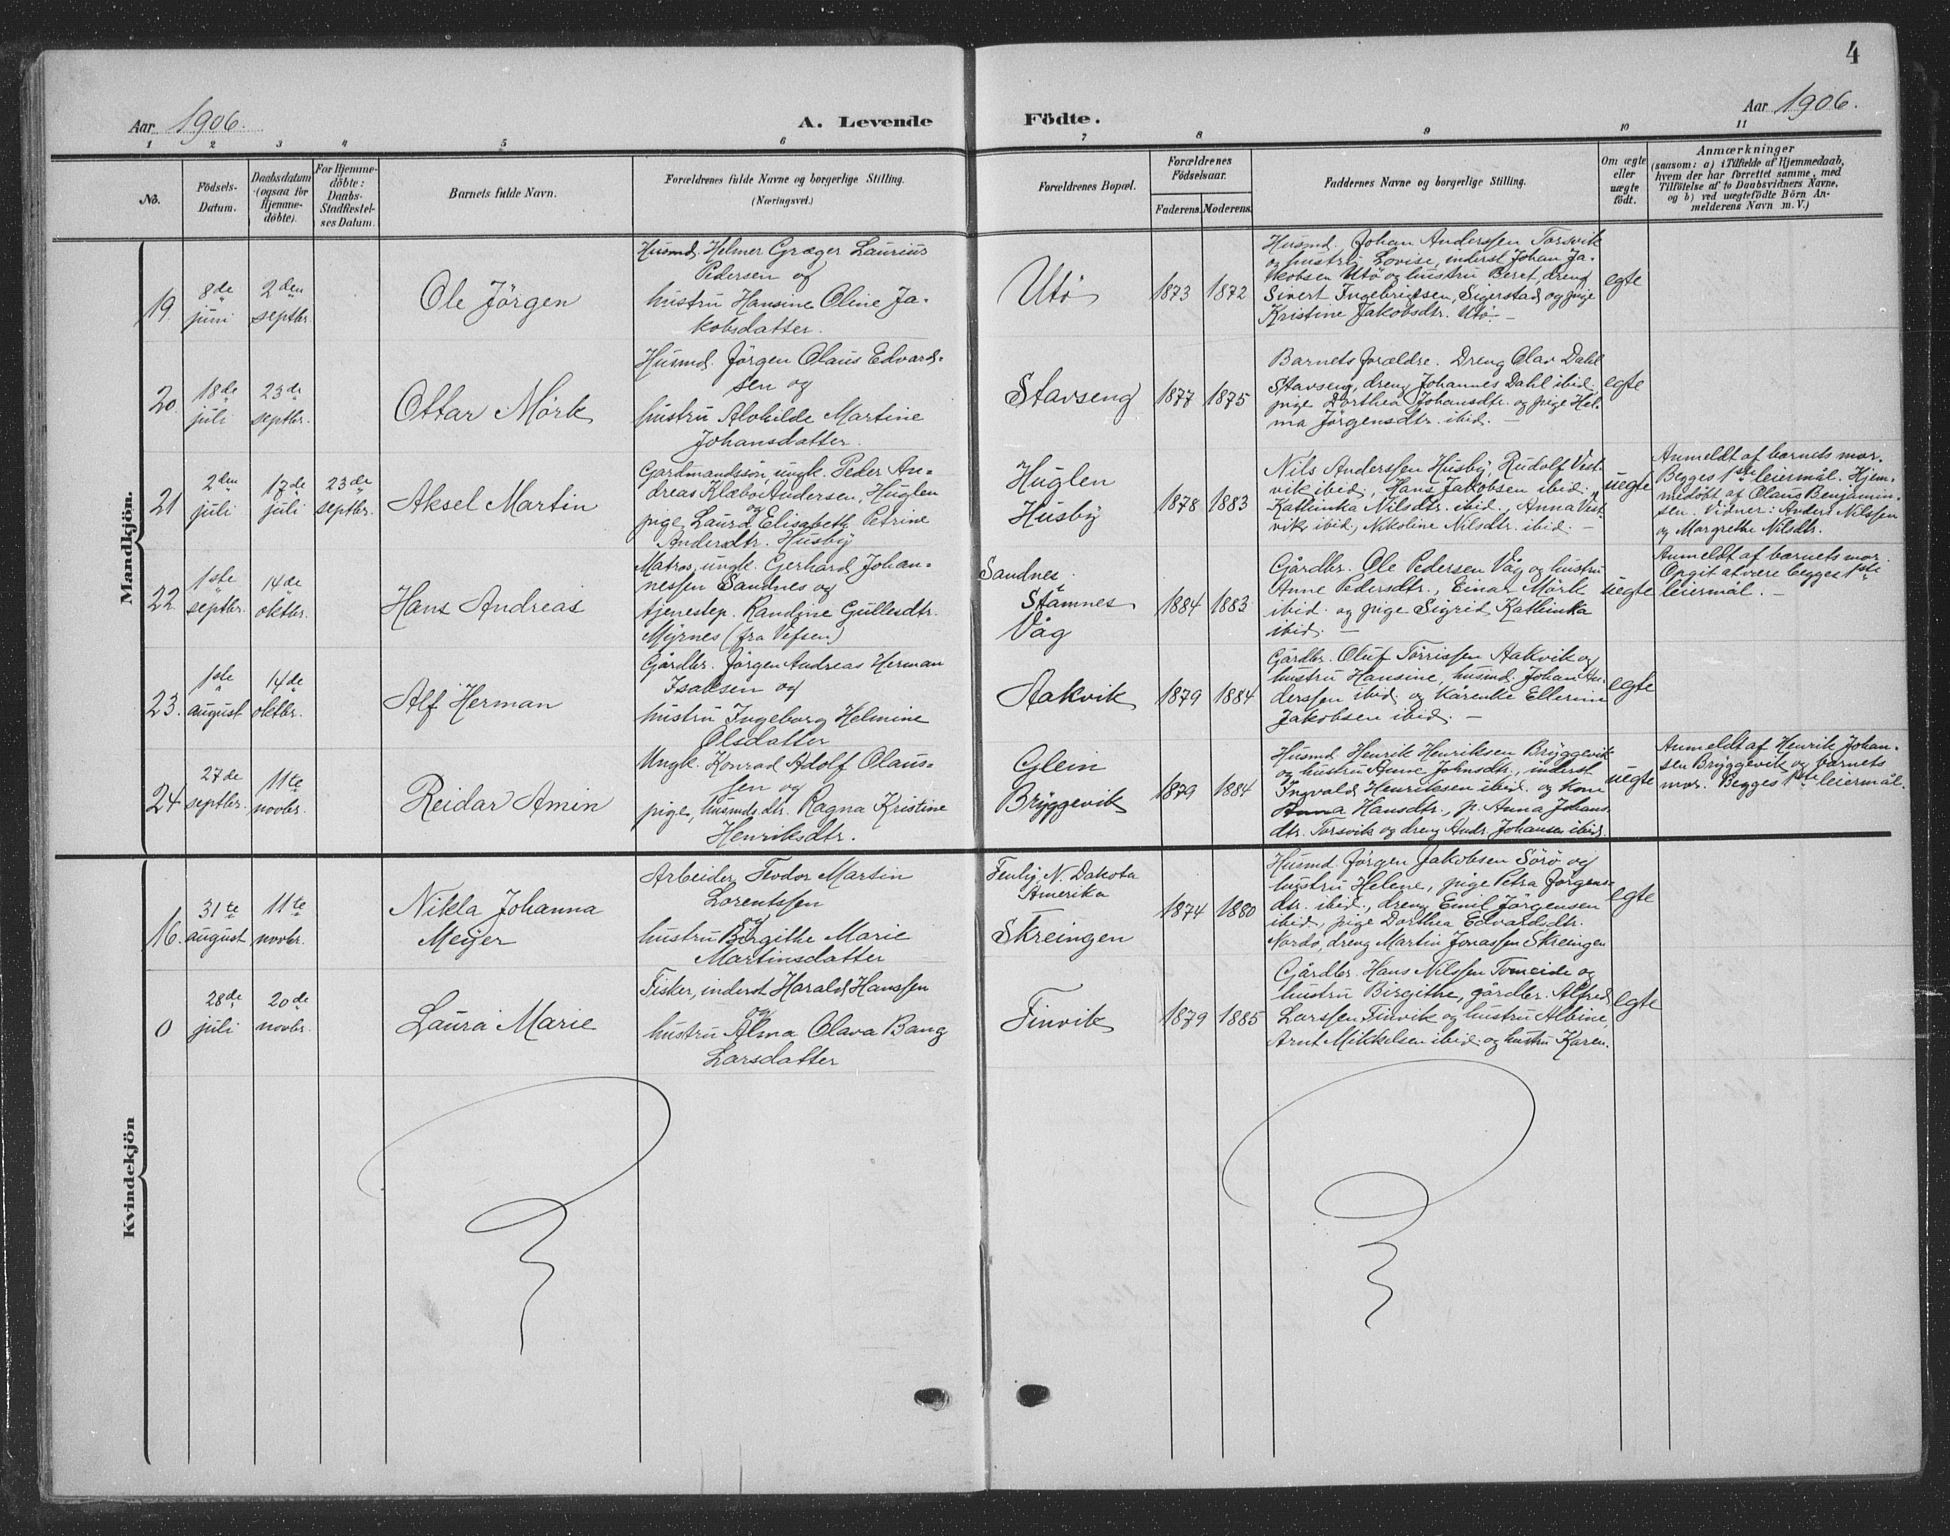 4
Aar 1906.
A. Levende
Födte.
Aar 1906.
1 2 3 4 5 6 7 8 9 10 11
No.
Födsels-
Datum.
Daabsdatum
(ogsaa for
Hjemme-
döbte).
For Hjemme-
döbte:
Daabs-
Stadfæstel-
ses Datum.
Barnets fulde Navn.
Forældrenes fulde Navne og borgerlige Stilling.
(Næringsvei.)
Forældrenes Bopæl.
Forældrenes
Födselsaar.
Faderens. Moderens.
Faddernes Navne og borgerlige Stilling.
Om ægte
eller
uægte
födt.
Anmærkninger
(saasom: a) i Tilfælde af Hjemmedaab,
hvem der har forrettet samme, med
Tilföielse af to Daabsvidners Navne,
og b) ved uægtefödte Börn An-
melderens Navn m. V.)
Mandkjön.
19.
8de
juni
2den
septbr.
Ole Jörgen
Husmd. Helmer Græger Laurius
Pedersen og
hustru Hansine Oline Ja-
kobsdatter.
Utö
1873 1872
Husmd. Johan Anderssen Torsvik
og hustru Lovise, inderst Johan Ja-
kobsen Utö og hustru Beret, dreng
Sivert Ingebrigtsen, Sigerstad og pige
Kristine Jakobsdtr. Utö. —
egte
20.
18de
juli
23de
septbr.
Ottar Mörk
Husmd. Jörgen Olaus Edvard-
sen og
hustru Alvhilde Martine
Johansdatter.
Stavseng
1877 1875
Barnets forældre. Dreng Olav Dahl
Stavseng, dreng Johannes Dahl ibid.
pige Dorthea Johansdtr. og pige Hel-
ma Jörgensdtr. ibid. —
egte
21
2den
juli
17de
juli
23de
septbr.
Aksel Martin
Gardmandssön, ungk. Peder An-
dreas Klæbo Andersen, Huglen
og
pige Laura Elisabeth Petrine
Andersdtr. Husby
Huglen
Husby
1878 1883
Nils Anderssen Husby, Rudolf Vest-
vik ibid., Hans Jakobsen ibid.,
Kathinka Nilsdtr. ibid., Anna Vest-
vik ibid., Nikoline Nilsdtr. ibid. —
uegte
Anmeldt af barnets mor.
Begges 1ste leiermål. Hjem-
medöbt af Olaus Benjamin-
sen. Vidner: Anders Nilssen
og Margrethe Nilsdtr.
22.
1ste
septbr.
14de
oktbr.
Hans Andreas
Matros, ungk. Gerhard Johan-
nessen Sandnes og
tjenestep. Randine Gullesdtr.
Myrnes (fra Vefsen)
Sandnes
Stamnes
Våg
1884 1883
Gårdbr. Ole Pedersen Våg og hustru
Anne Pedersdtr., Einar Mörk
ibid. og pige Sigrid Kathinka
ibid. —
uegte
Anmeldt af barnets mor
Opgit at være begges 1ste
leiermål. —
23.
1ste
august
14de
oktbr.
Alf Herman
Gårdbr. Jörgen Andreas Herman
Isaksen og
hustru Ingeborg Helmine
Olsdatter
Aakvik
1879 1884
Gårdbr. Oluf Törrissen Aakvik og
hustru Hansine, husmd. Johan An-
derssen ibid. og Kårenke Ellerine
Jakobsen ibid. —
egte
24
27de
septbr.
11te
novbr.
Reidar Amin
Ungk. Konrad Adolf Olaus-
sen og
pige, husmds.dtr. Ragna Kristine
Henriksdtr.
Glein
Bryggevik
1879 1884
Husmd. Henrik Henriksen Bryggevik
og hustru Anne Johnsdtr., inderst
Ingvald Henriksen ibid. og kone
Anna Hansdtr., p. Anna Johans-
dtr. Torsvik og dreng Andr. Johansen ibid.
uegte
Anmeldt af Henrik Johan-
sen Bryggevik og barnets
mor. Begges 1ste leiermål.
Kvindekjön
16.
31te
august
11te
novbr.
Nikla Johanna
Meyer
Arbeider Teodor Martin
Lorentssen
og
hustru Birgithe Marie
Martinsdatter
N. Dakota
Amerika
Skreingen
1874 1880
Husmd. Jörgen Jakobsen Sörö og
hustru Helene, pige Petra Jörgens-
dtr. ibid., dreng Emil Jörgensen
ibid., pige Dorthea Edvardsdtr.
Nordö, dreng Martin Jonassen Skreingen
egte
0
28de
juli
20de
novbr.
Laura Marie
Fisker, inderst Harald Hanssen
og
hustru Alma Olava Bang
Larsdatter
Finvik
1879 1885
Gårdbr. Hans Nilssen Tomeide og
hustru Birgithe, gårdbr. Alfred
Larssen Finvik og hustru Albine,
Arnt Mikkelsen ibid. og hustru Karen.
egte